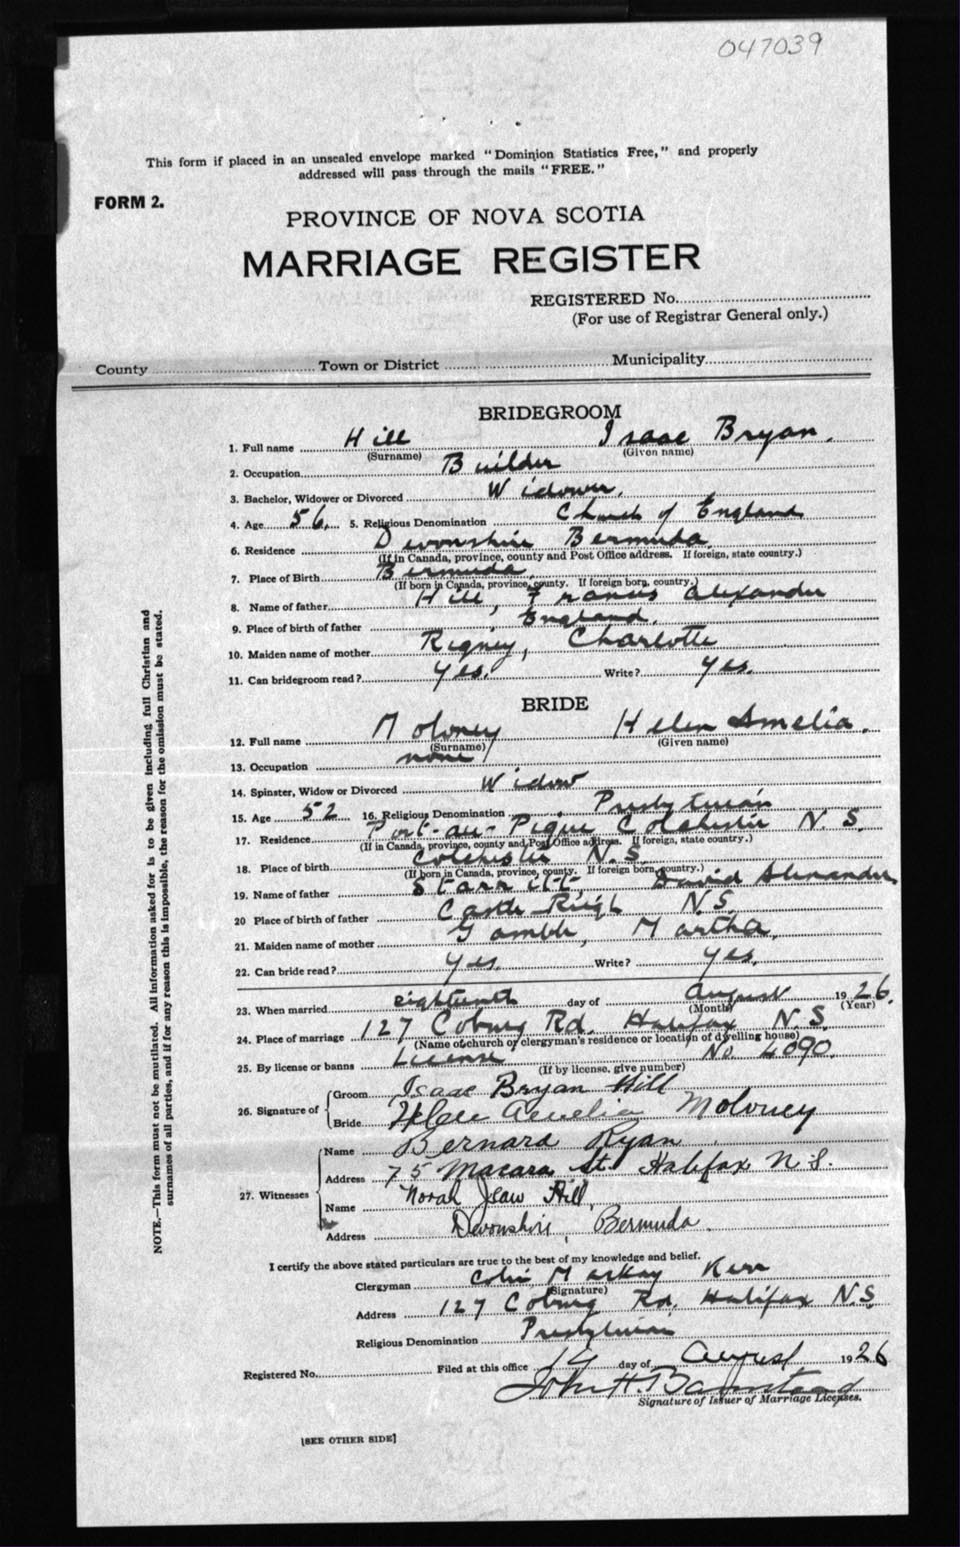 047039
This form if placed in an unsealed envelope marked "Dominion Statistics Free," and properly
addressed will pass through the mails "FREE."
FORM 2.
PROVINCE OF NOVA SCOTIA
MARRIAGE REGISTER
REGISTERED No.
(For use of Registrar General only.)
County Town or District Municipality
BRIDEGROOM
1. Full name Hill Isaac Bryan.
(Surname) (Given name)
2. Occupation Builder
3. Bachelor, Widower or Divorced Widower.
4. Age 56. 5. Religious Denomination Church of England
6. Residence Devonshire Bermuda.
(If in Canada, province, county and Post Office address. If foreign, state country.)
7. Place of Birth Bermuda.
(If born in Canada, province, county. If foreign born, country.)
8. Name of father Hill, Francis Alexander
9. Place of birth of father England.
10. Maiden name of mother Rigney, Charlotte
11. Can bridegroom read? Yes. Write? Yes.
BRIDE
12. Full name Moloney Helen Amelia.
(Surname) (Given name)
13. Occupation none
14. Spinster, Widow or Divorced Widow
15. Age 52 16. Religious Denomination Presbyterian
17. Residence Port-au-Pique Colchester N.S.
(If in Canada, province, county and Post Office address. If foreign, state country.)
18. Place of birth Colchester N.S.
(If born in Canada, province, county. If foreign born, country.)
19. Name of father Starritt, David Alexander
20 Place of birth of father Castle N.S.
21. Maiden name of mother Gamble, Martha.
22. Can bride read? Yes. Write? Yes.
23. When married eighteenth day of August 1926.
(Month) (Year)
24. Place of marriage 127 Coburg Rd. Halifax N.S.
(Name of church or clergyman's residence or location of dwelling house)
25. By license or banns License No 4090.
(If by license, give number)
26. Signature of
Groom Isaac Bryan Hill
Bride Helen Amelia Moloney
27. Witnesses
Name Bernard Ryan
Address 75 Macara St. Halifax N.S.
Name Norah Jean Hill,
Address Devonshire, Bermuda.
I certify the above stated particulars are true to the best of my knowledge and belief.
Clergyman Colin Mackay Kerr
(Signature)
Address 127 Coburg Rd. Halifax N.S.
Religious Denomination Presbyterian
Registered No. Filed at this office day of August 1926
John H. Barnstead
Signature of Issuer of Marriage Licenses.
[SEE OTHER SIDE]
NOTE.—This form must not be mutilated. All information asked for is to be given including full Christian and
surnames of all parties, and if for any reason this is impossible, the reason for the omission must be stated.